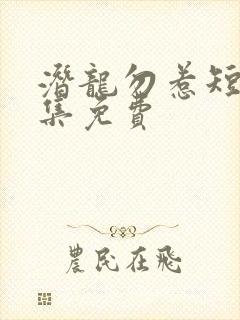 潛龍勿惹短
集免費
農民在飛